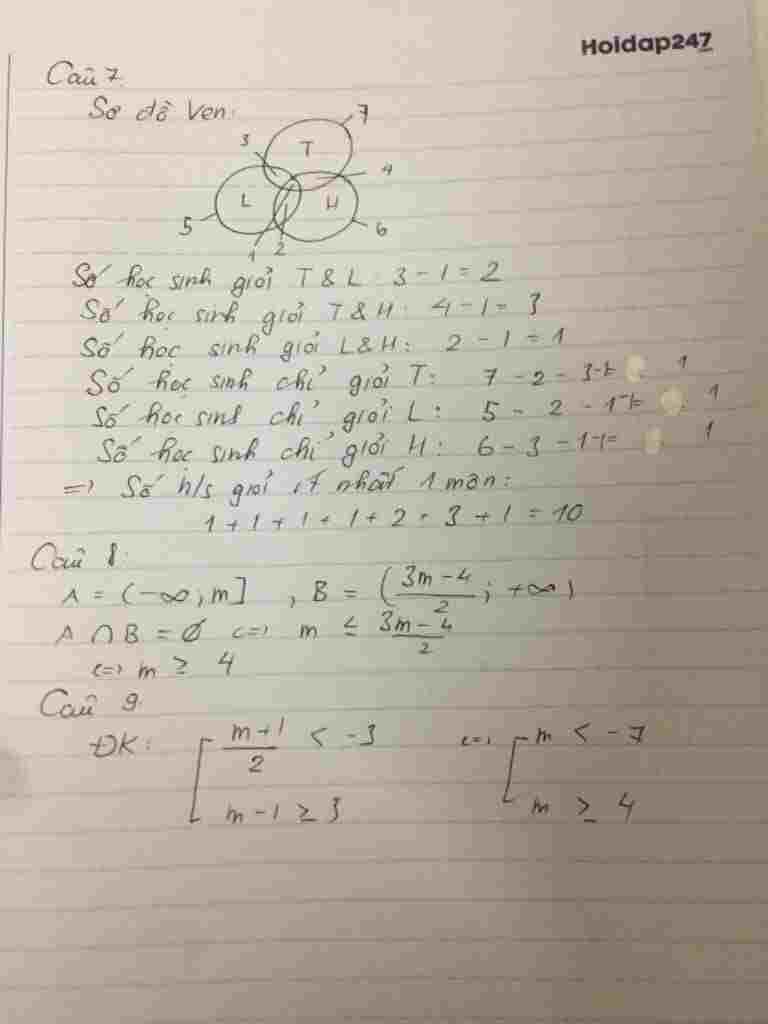 Hoidap247
Câu 7.
Sơ đồ Ven:
7
3
T
4
L
H
5
6
1 2
Số học sinh giỏi T & L : 3 - 1 = 2
Số học sinh giỏi T & H : 4 - 1 = 3
Số học sinh giỏi L & H : 2 - 1 = 1
Số học sinh chỉ giỏi T : 7 - 2 - 3 - 1 = 1
Số học sinh chỉ giỏi L : 5 - 2 - 1 - 1 = 1
Số học sinh chỉ giỏi H : 6 - 3 - 1 - 1 = 1
=> Số h/s giỏi ít nhất 1 môn :
1 + 1 + 1 + 1 + 2 + 3 + 1 = 10
Câu 8.
A = (-∞; m] , B = (3m-4/2 ; +∞)
A ∩ B = Ø <=> m ≤ 3m-4/2
<=> m ≥ 4
Câu 9.
ĐK : [ m+1/2 < -3 <=> [ m < -7
m - 1 ≥ 3 m ≥ 4